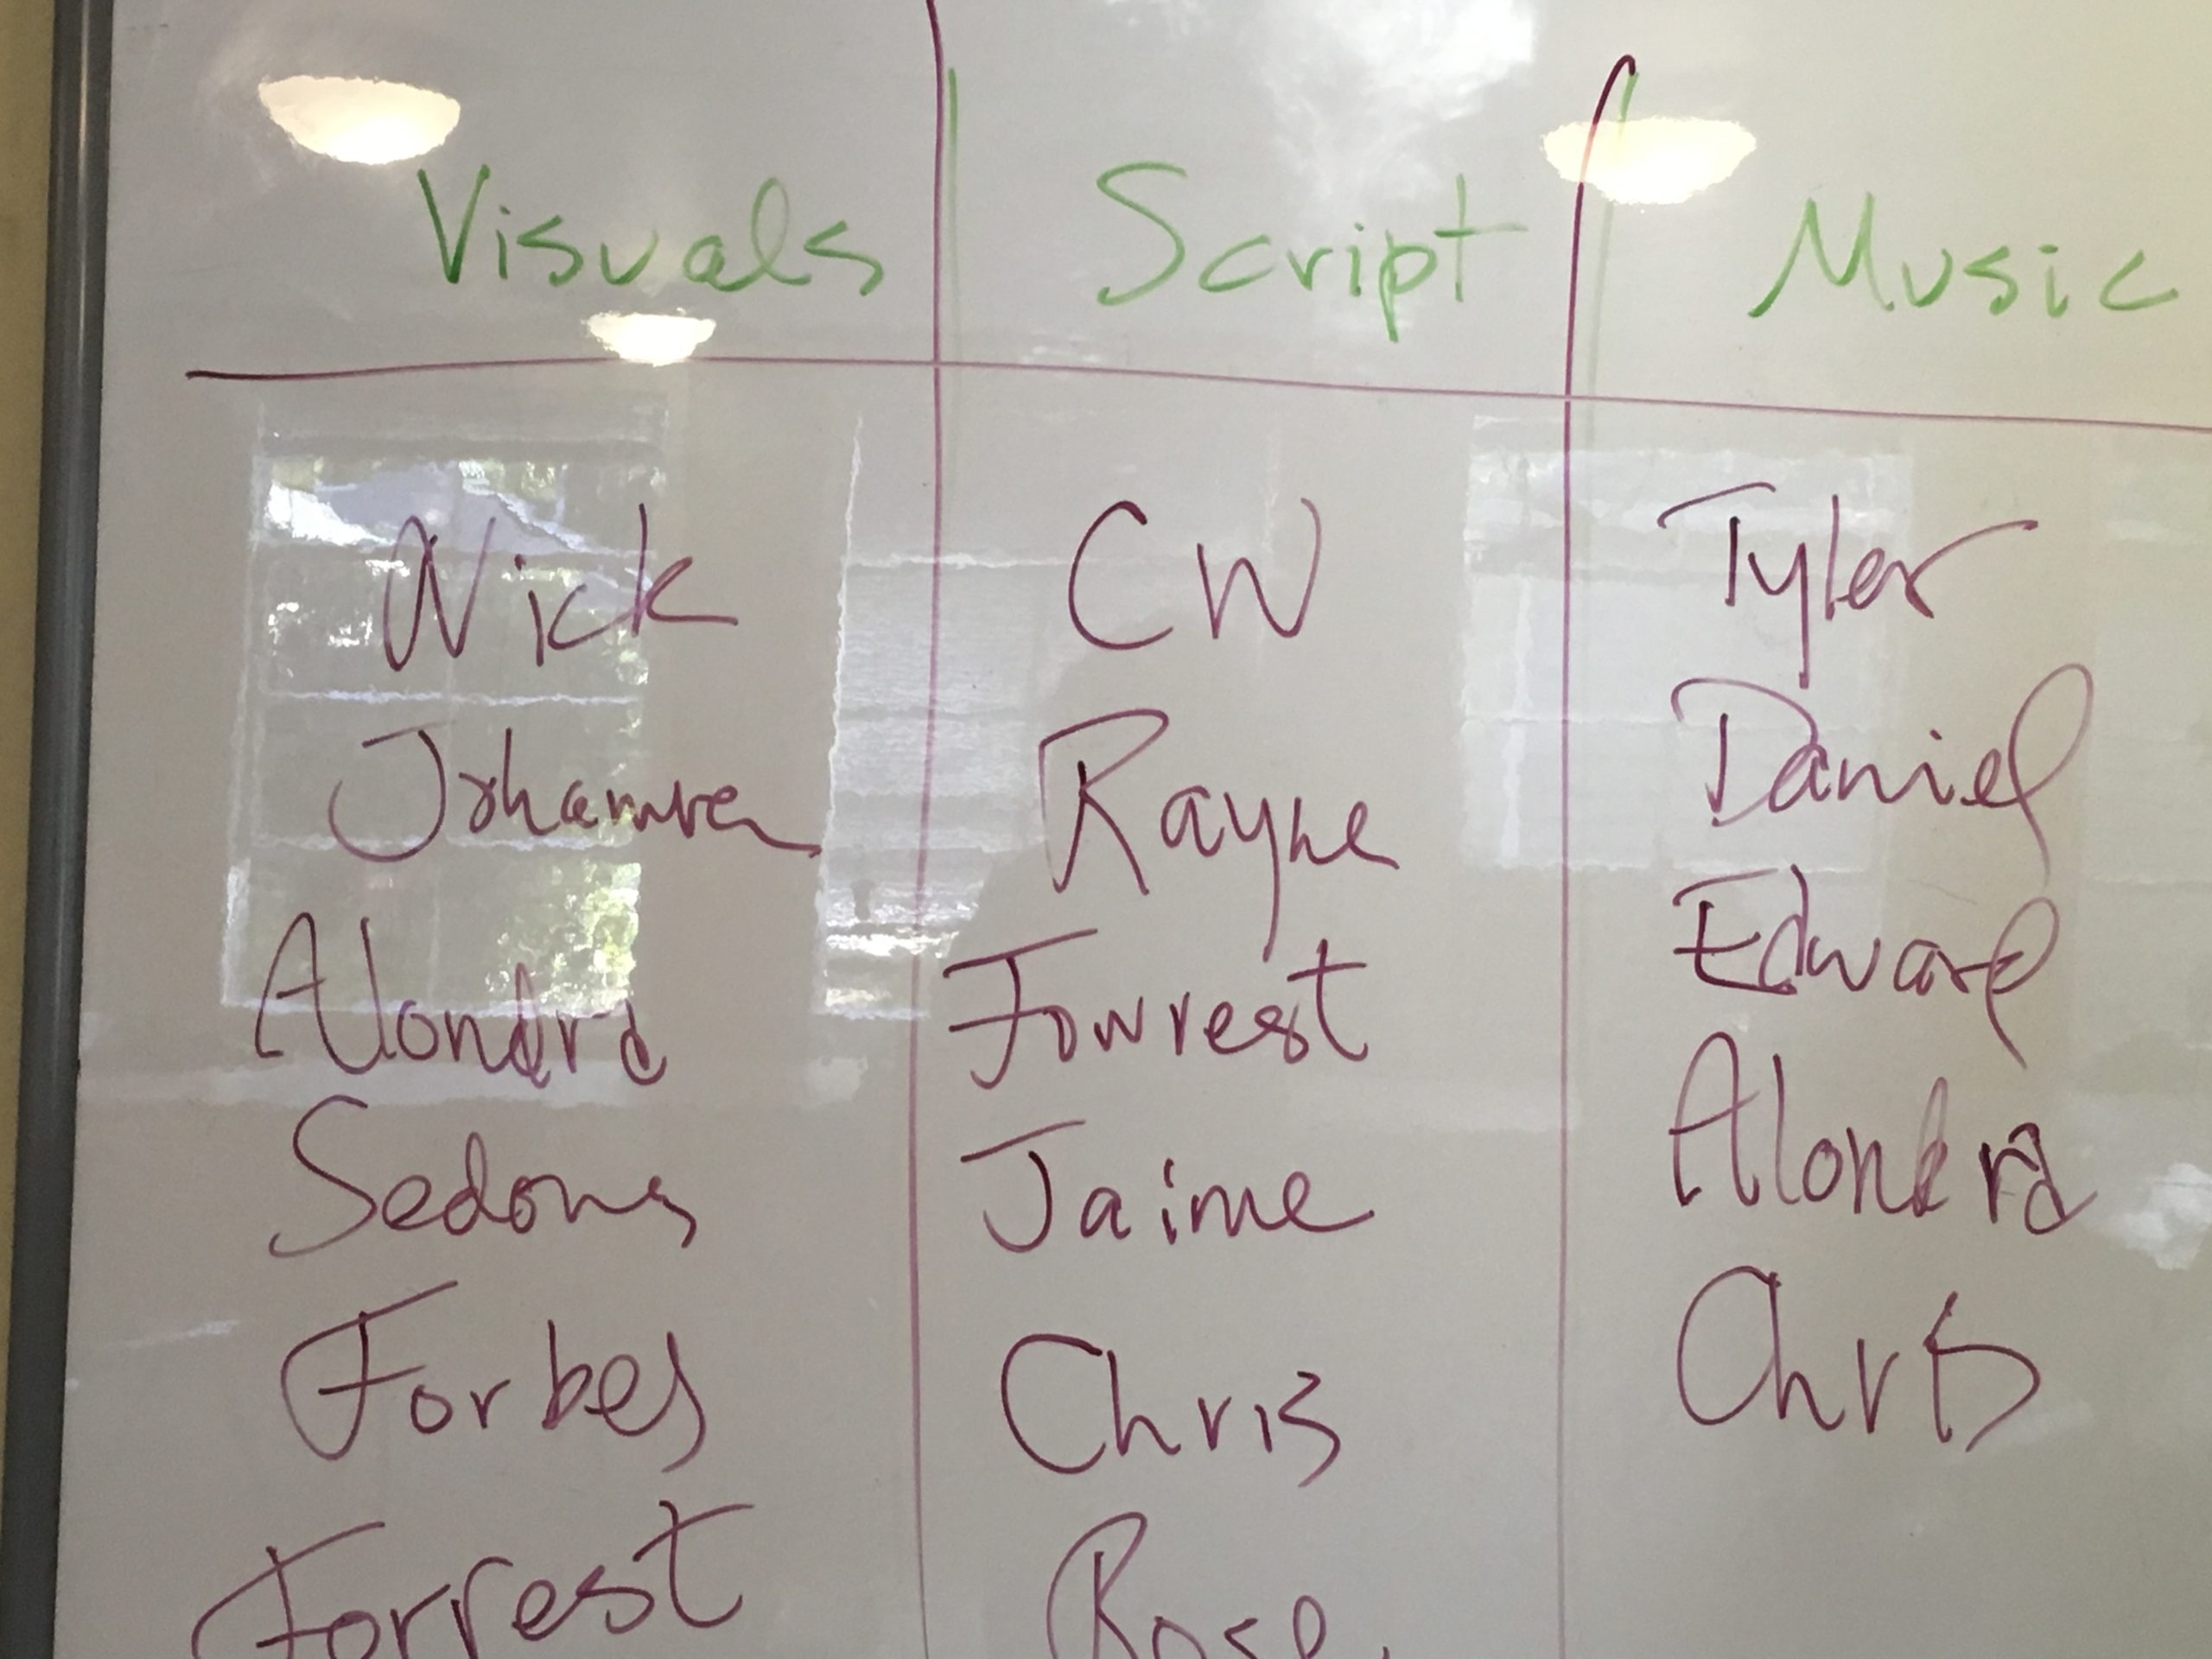 Visuals Script Music
Nick CW Tyler
Johanna Rayne Daniel
Alondra Forrest Edward
Sedona Jaime Alondra
Forbes Chris Chris
Forrest Rose